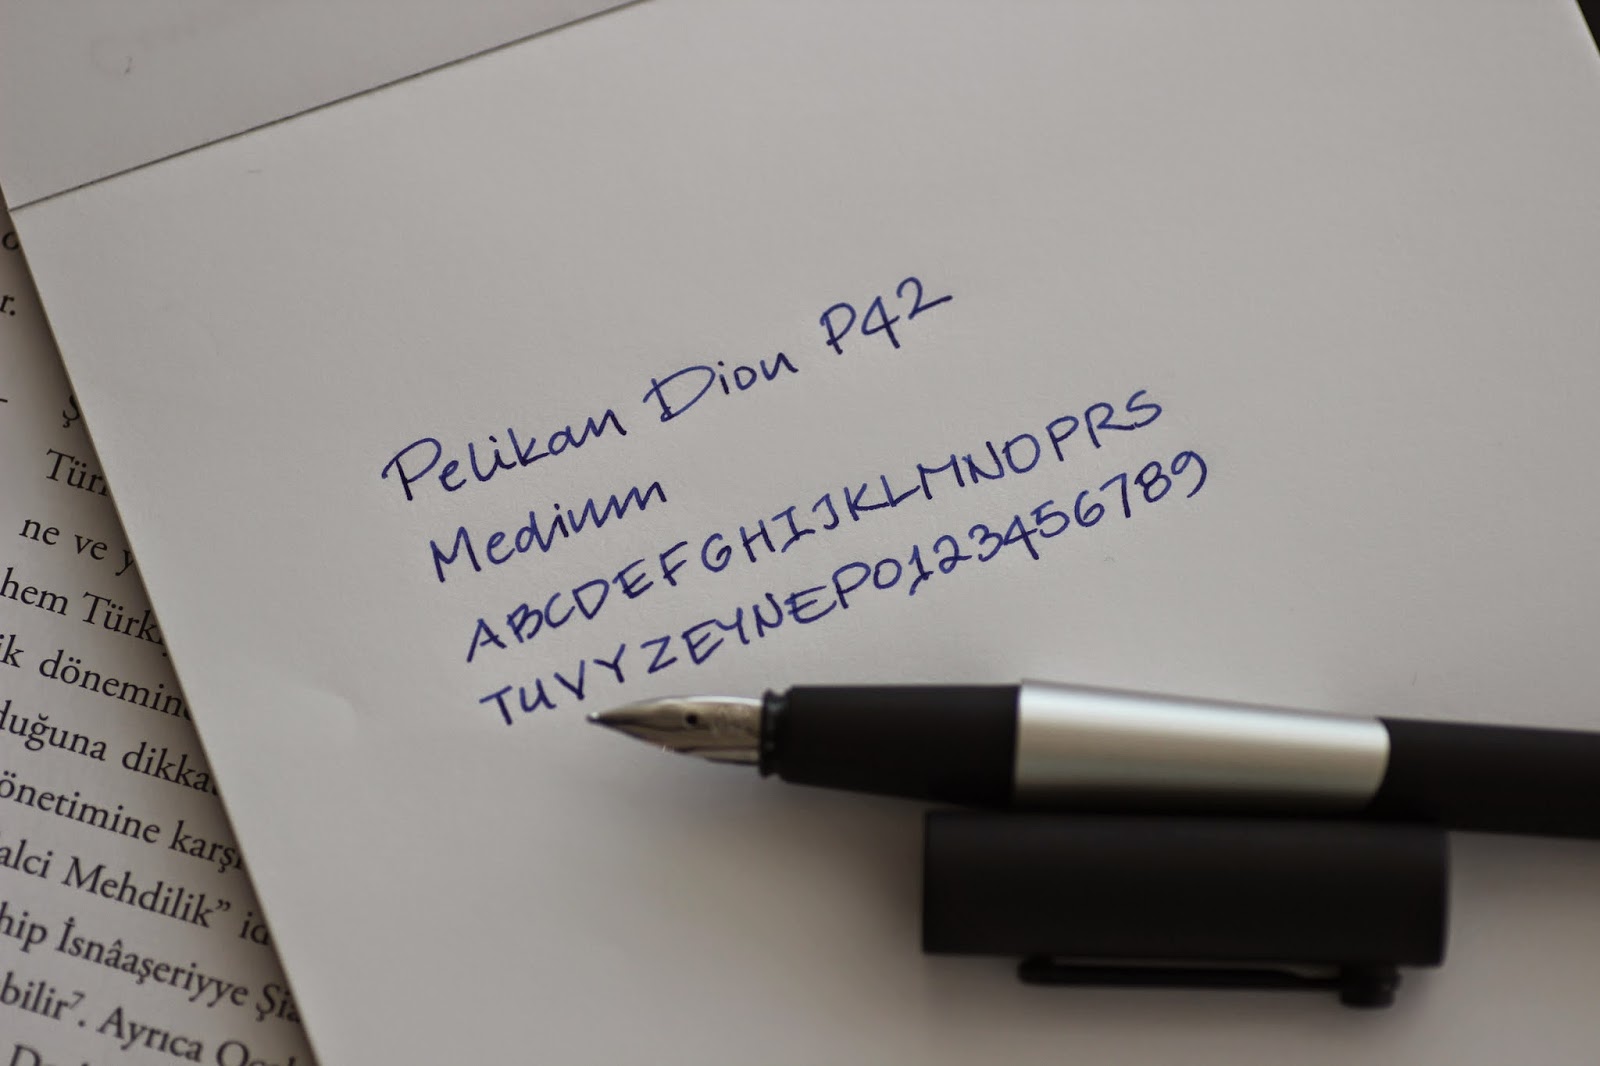 Pelikan Dion P42
Medium
ABCDEFGHIJKLMNOPRS
TUVYZEYNEP0123456789
r.
Ş
Tür
ne ve y
hem Türki
ik dönemin
duğuna dikka
önetimine karşı
alci Mehdilik” id
hip İsnâaşeriyye Şia
bilir7. Ayrıca Oca